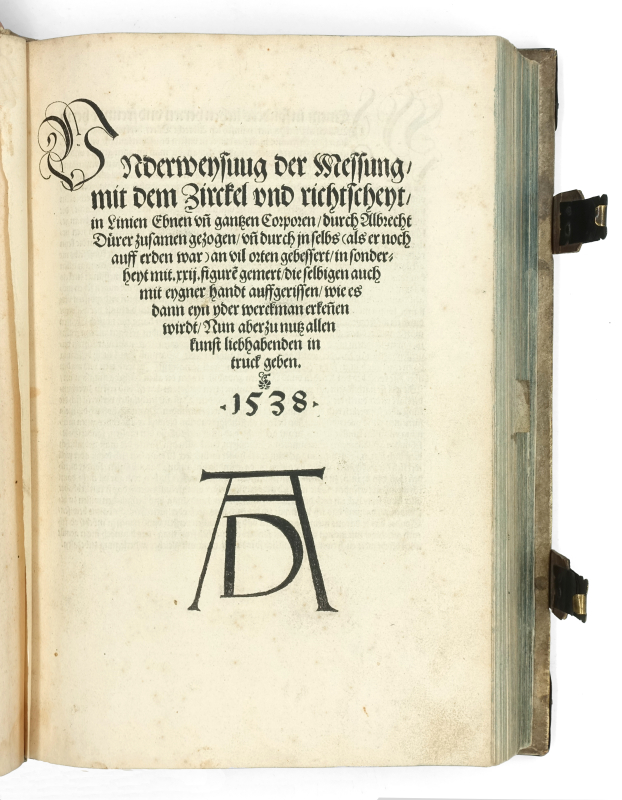 VNderweysuug der Messung/
mit dem Zirckel vnd richtscheyt/
in Linien Ebnen vñ gantzen Corporen/ durch Albrecht
Dürer zusamen gezogen/ vñ durch jn selbs (als er noch
auff erden war) an vil orten gebessert/ in sonder-
heyt mit .xxij. figurẽ gemert/ die selbigen auch
mit eygner handt auffgerissen/ wie es
dann eyn yder werckman erkeñen
wirdt/ Nun aber zu nutz allen
kunst liebhabenden in
truck geben.
1538
AD